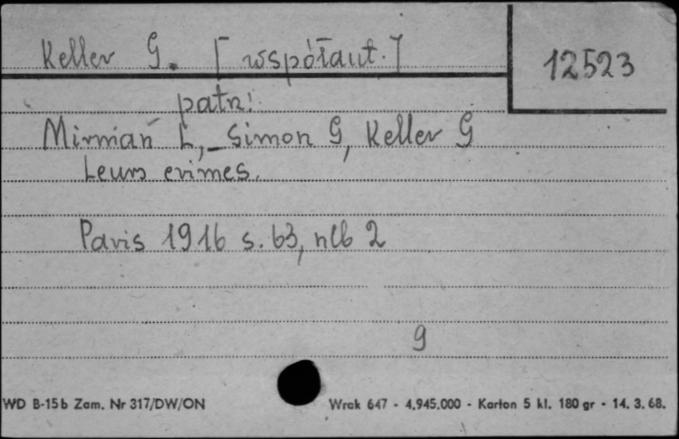 Keller G. [współaut.]
12523
patrz:
Mirman L, Simon G, Keller G
Leurs crimes.
Paris 1916 s. 63, nlb 2
9
WD B-15b Zam. Nr 317/DW/ON
Wrak 647 - 4.945.000 - Karton 5 kl. 180 gr - 14. 3. 68.